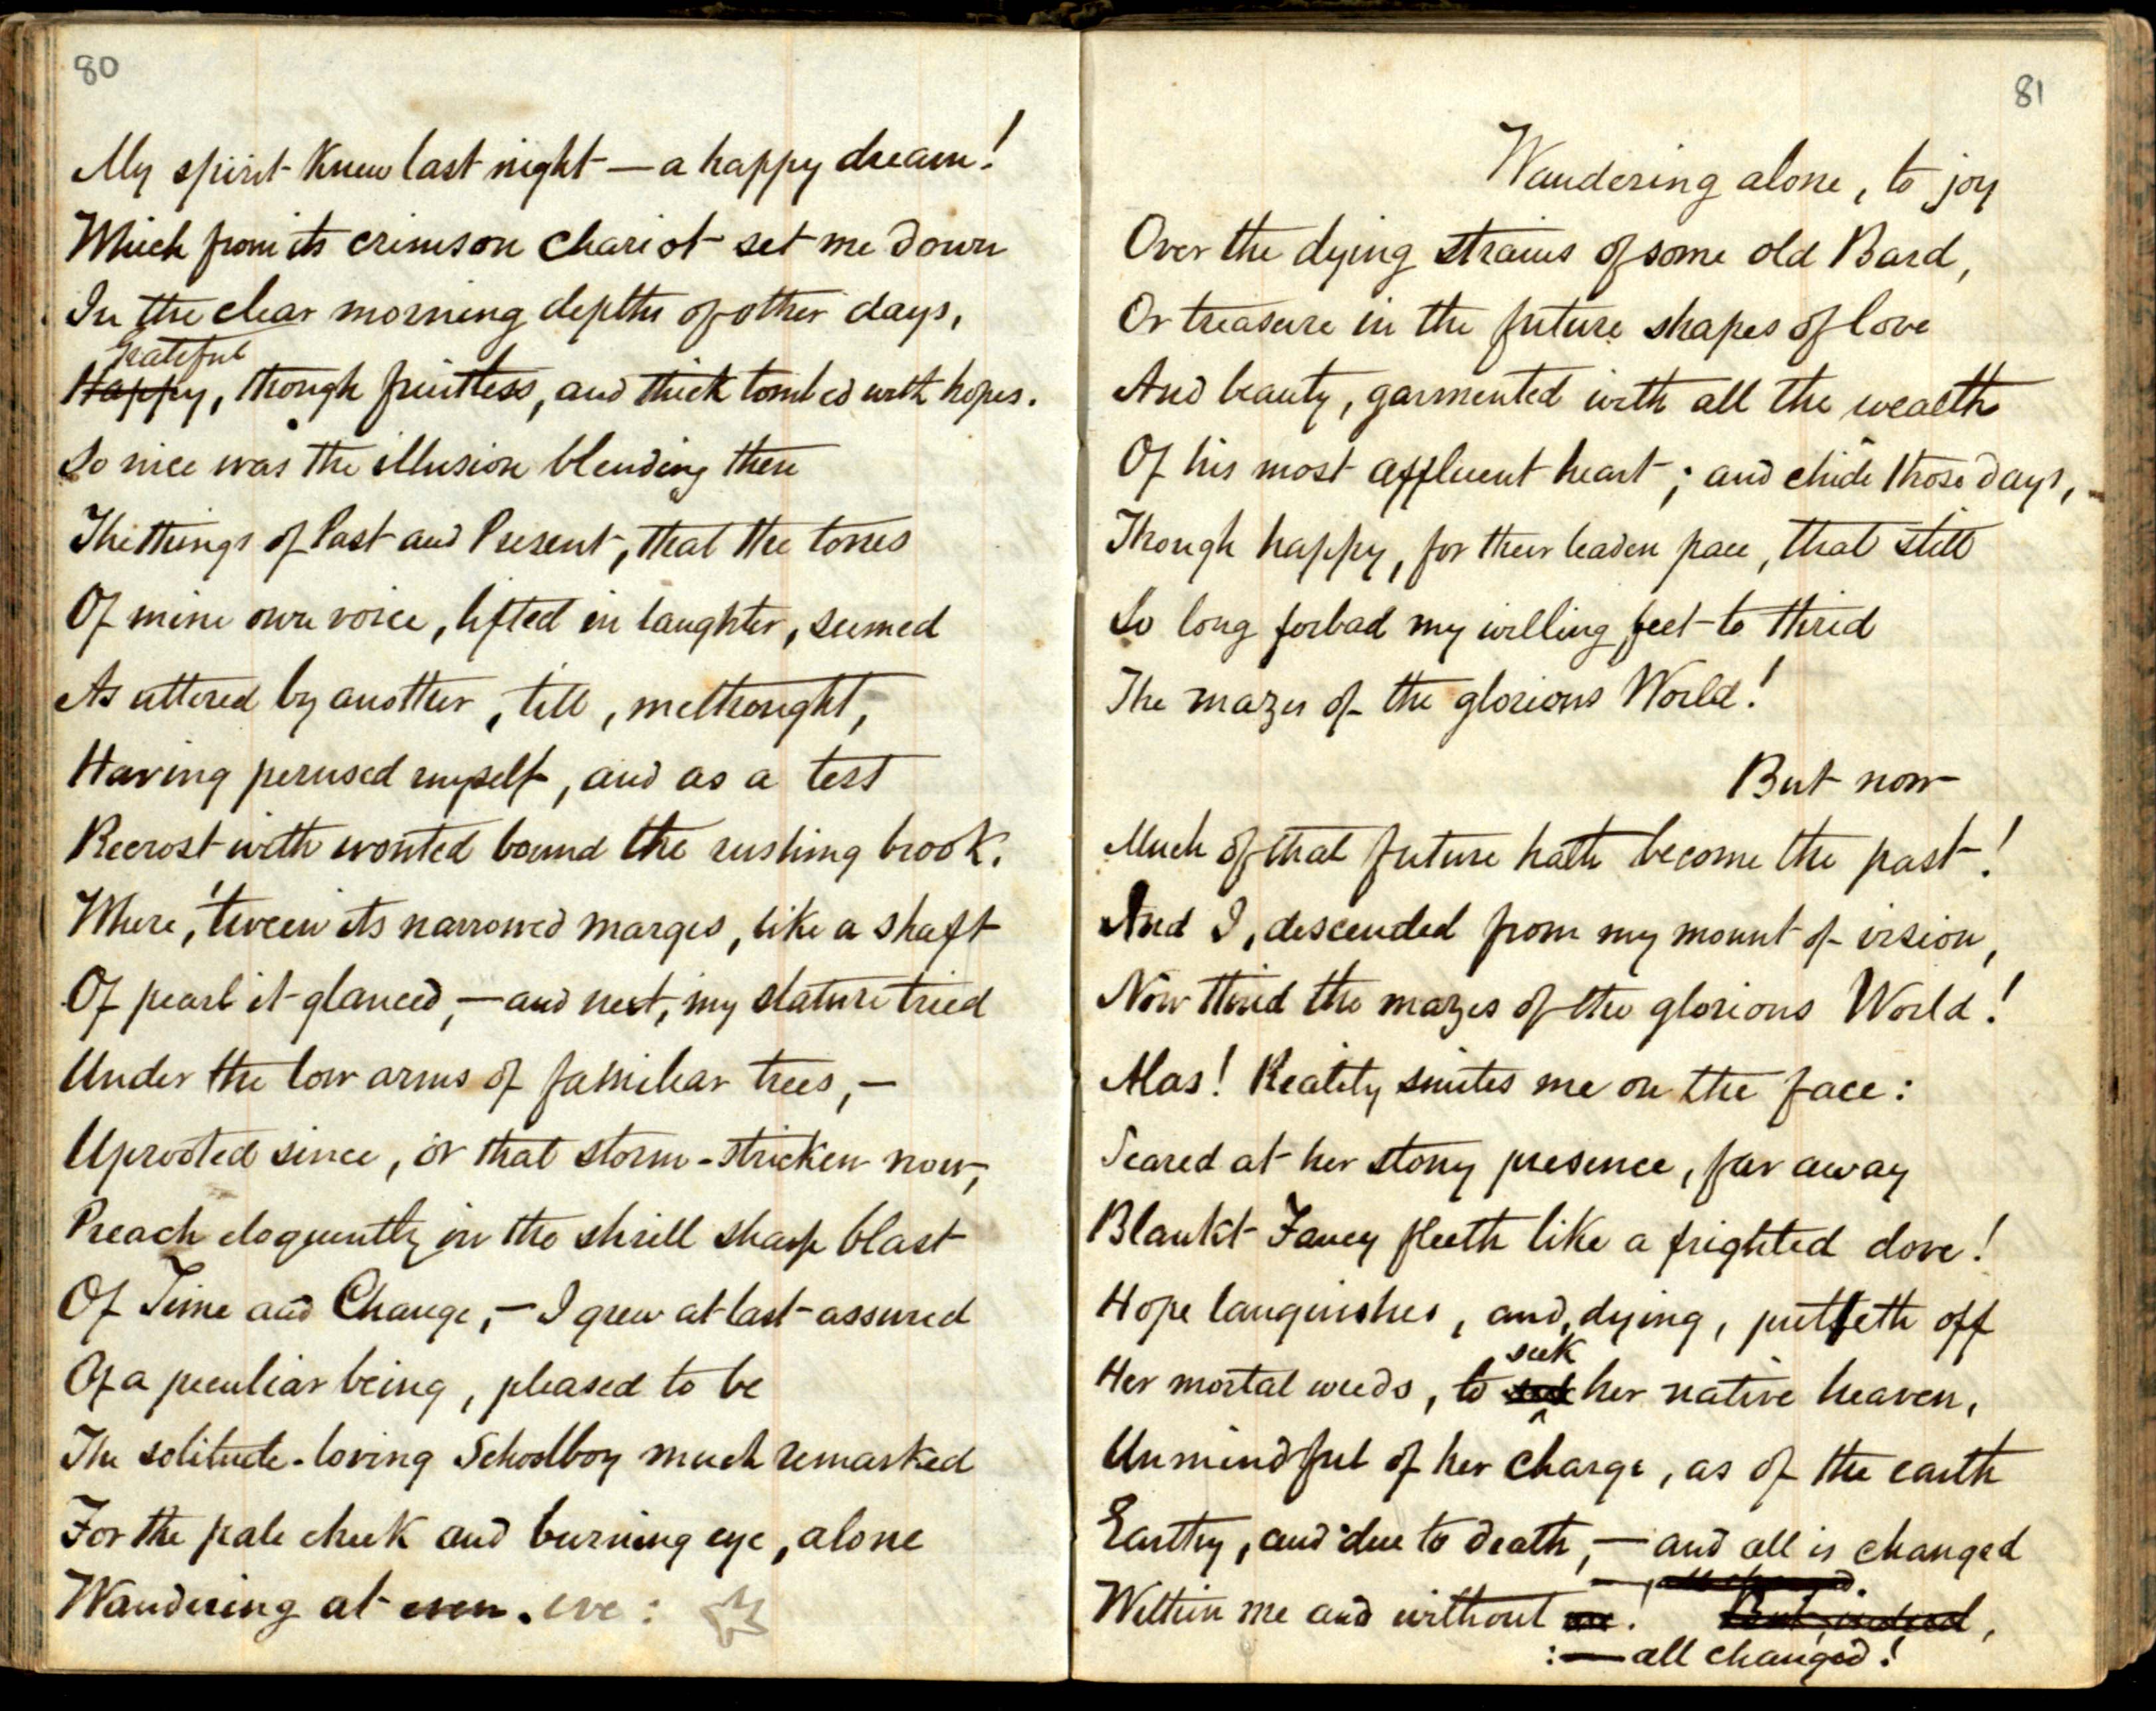 80
My spirit knew last night — a happy dream!
Which from its crimson chariot set me down
In the clear morning depths of other days,
Grateful
Happy, though fruitless, and thick tombed with hopes.
So nice was the illusion blending there
The things of Past and Present, that the tones
Of mine own voice, lifted in laughter, seemed
As uttered by another, till, methought,
Having perused myself, and as a test
Recrost with wonted bound the rushing brook,
Where, 'tween its narrowed marges, like a shaft
Of pearl it glanced, — and next, my stature tried
Under the low arms of familiar trees, —
Uprooted since, or that storm-stricken now,
Preach eloquently in the shrill sharp blast
Of Time and Change, — I grew at last assured
Of a peculiar being, pleased to be
The solitude-loving Schoolboy much remarked
For the pale cheek and burning eye, alone
Wandering at even. eve:
81
Wandering alone, to joy
Over the dying strains of some old Bard,
Or treasure in the future shapes of love
And beauty, garmented with all the wealth
Of his most affluent heart; and chide those days,
Though happy, for their leaden pace, that still
So long forbad my willing feet to thrid
The mazes of the glorious World!
But now
Much of that future hath become the past!
And I, descended from my mount of vision,
Now thrid the mazes of the glorious World!
Alas! Reality smites me on the face:
Scared at her stony presence, far away
Blankt Fancy fleeth like a frighted dove!
Hope languishes, and, dying, putteth off
seek
Her mortal weeds, to her native heaven,
Unmindful of her charge, as of the earth
Earthy, and due to death, — and all is changed
— all changed.
Within me and without me! But, indeed,
: — all changed!